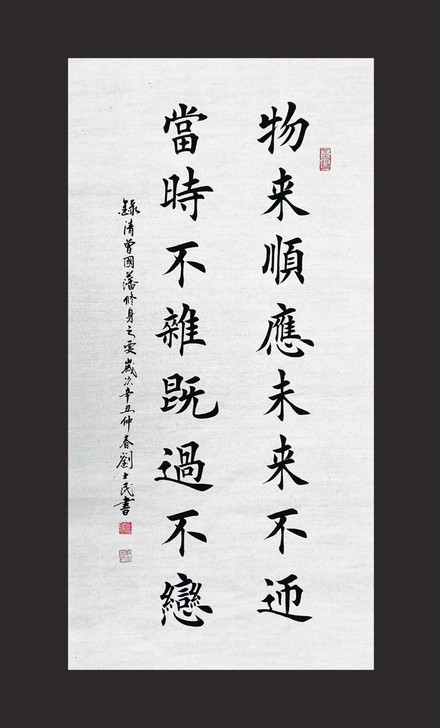 物来順應未来不迎
當時不雜既過不戀
錄清曾國藩修身之要歲次辛丑仲春劉士民書